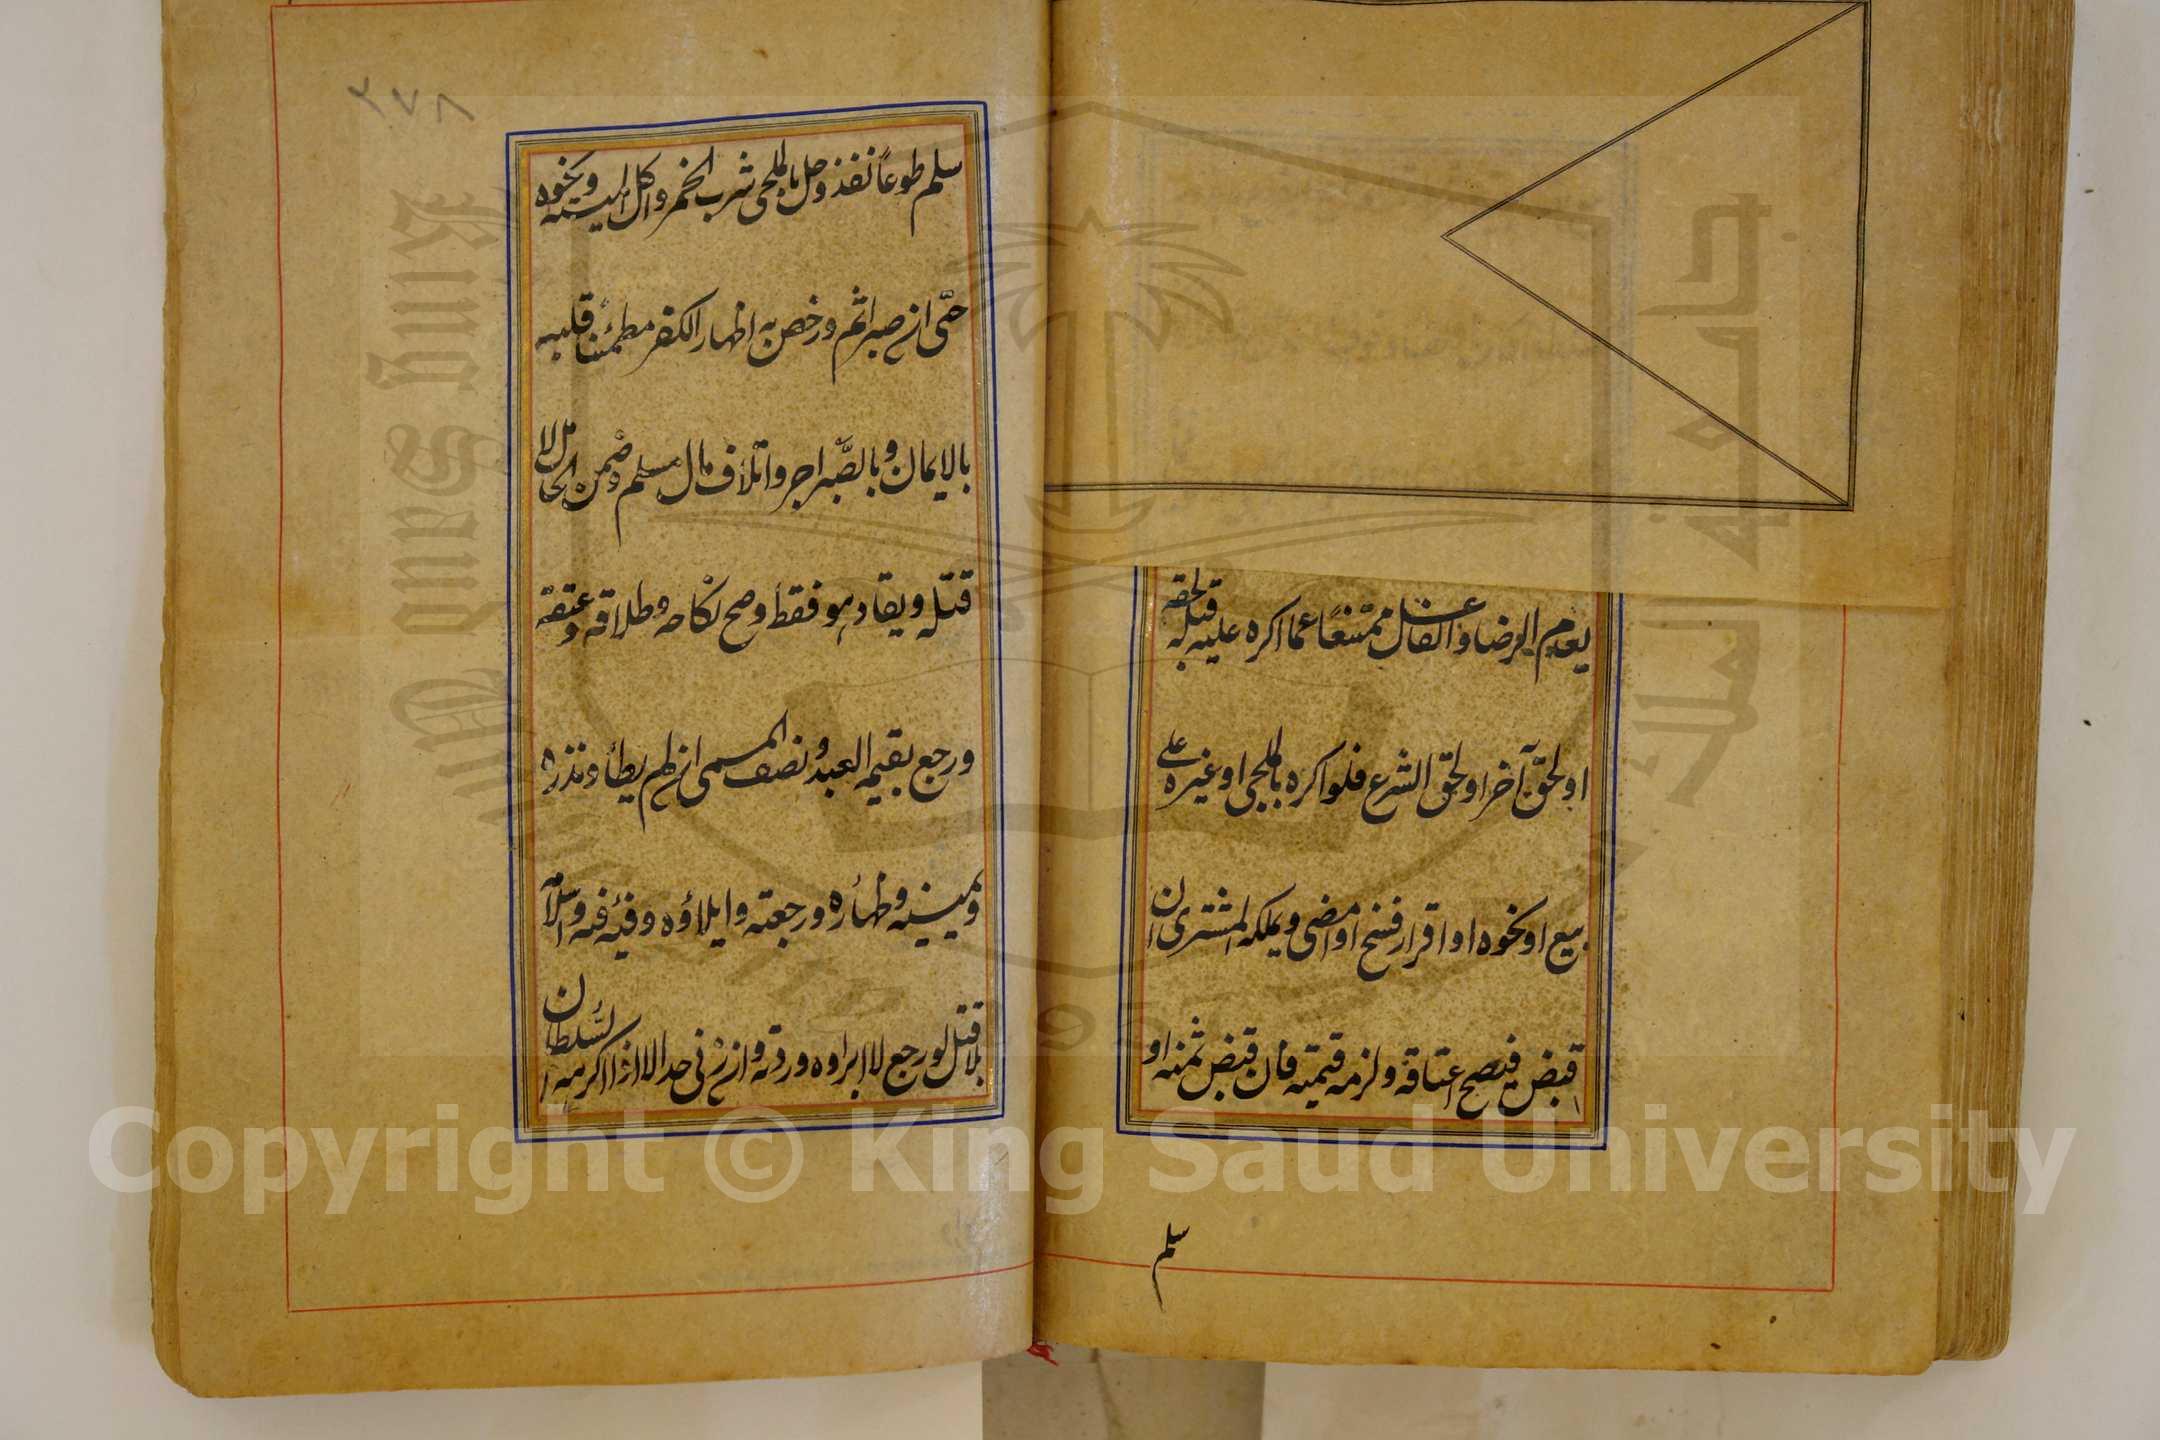 يعدم الرضا والفاعل ممتنعًا عما اكره عليه قبله لحقه
او لحق آخر او لحق الشرع فلو اكره بالملجى او غيره على
بيع او نحوه او اقرار فسخ او امضى ويملكه المشترى ان
قبض فيصح اعتاقه ولزمه قيمته فان قبض ثمنه او
سلم
٢٧٨
سلم طوعًا نفذ وحل بالملجى شرب الخمر واكل الميتة ونحوه
حتّى ان صبر اثم ورخص به اظهار الكفر مطمئنا قلبه
بالايمان وبالصّبر اجر واتلاف مال مسلم وضمن الحامل لا
قتله ويقاد هو فقط وصح نكاحه وطلاقه وعتقه
ورجع بقيمة العبد ونصف المسمى ان لم يطأ ونذره
ويمينه وظهاره ورجعته وايلاؤه وفيئه فيه واسلامه
بلا قتل لو رجع لا ابراوه وردته وان زنى حد الا اذا اكرهه السّلطان
جامعة الملك سعود
King Saud University
1957
Copyright © King Saud University